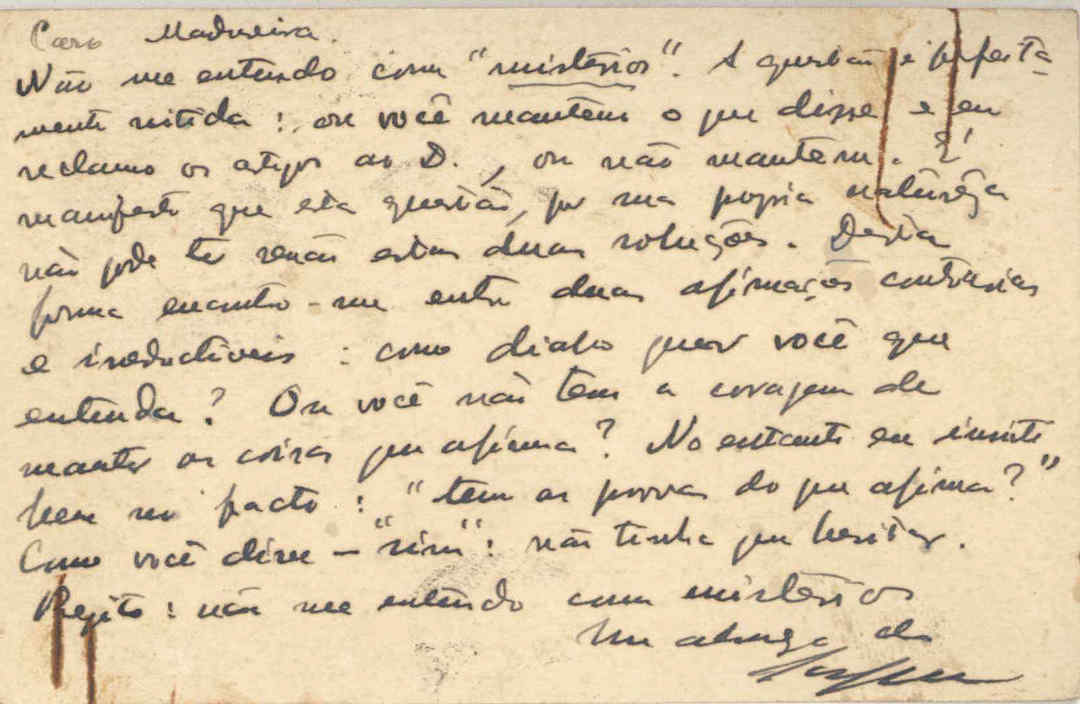 Caro Madureira.
Não me entendo com "mistérios". A questão é perfeita-
mente nitida : ou você mantém o que disse e eu
reclamo os artigos ao D., ou não mantém. É
manifesto que esta questão, por sua propria naturêza
não pode ter senão estas duas soluções. Desta
forma encontro-me entre duas afirmações contrarias
e ireductiveis : como diabo quer você que
entenda? Ou você não tem a coragem de
manter as coisas que afirma? No entanto eu insisti
bem no facto : "tem as provas do que afirma?"
Como você disse – "sim" : não tinha que hesitar.
Repito : não me entendo com mistérios
Um abraço do